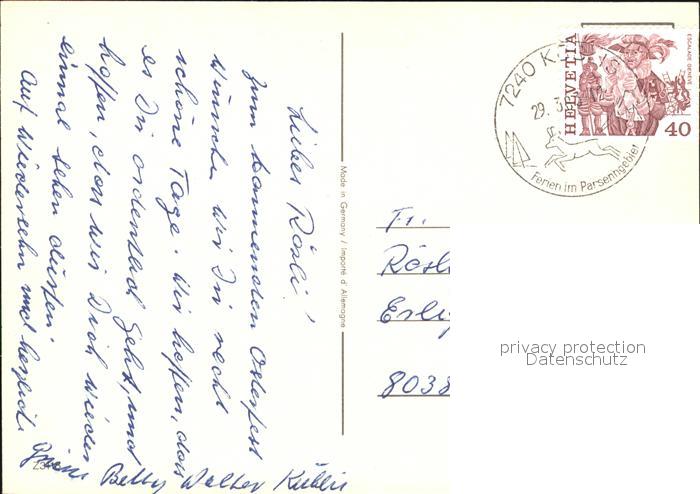 Liebes Rösli!
Zum kommenden Osterfest
wünschen wir Dir recht
schöne Tage. Wir hoffen, dass
es Dir ordentlich geht, und
hoffen, dass wir Dich wieder
einmal sehen dürfen.
Auf Wiedersehn und herzlich
Grüsse Betty Walter Küblis
Made in Germany / Importé d'Allemagne
7240 K
29. 3.
Ferien im Parsenngebiet
HELVETIA
ESCALADE GENÈVE
40
Fr.
Rösl
8038
privacy protection
Datenschutz